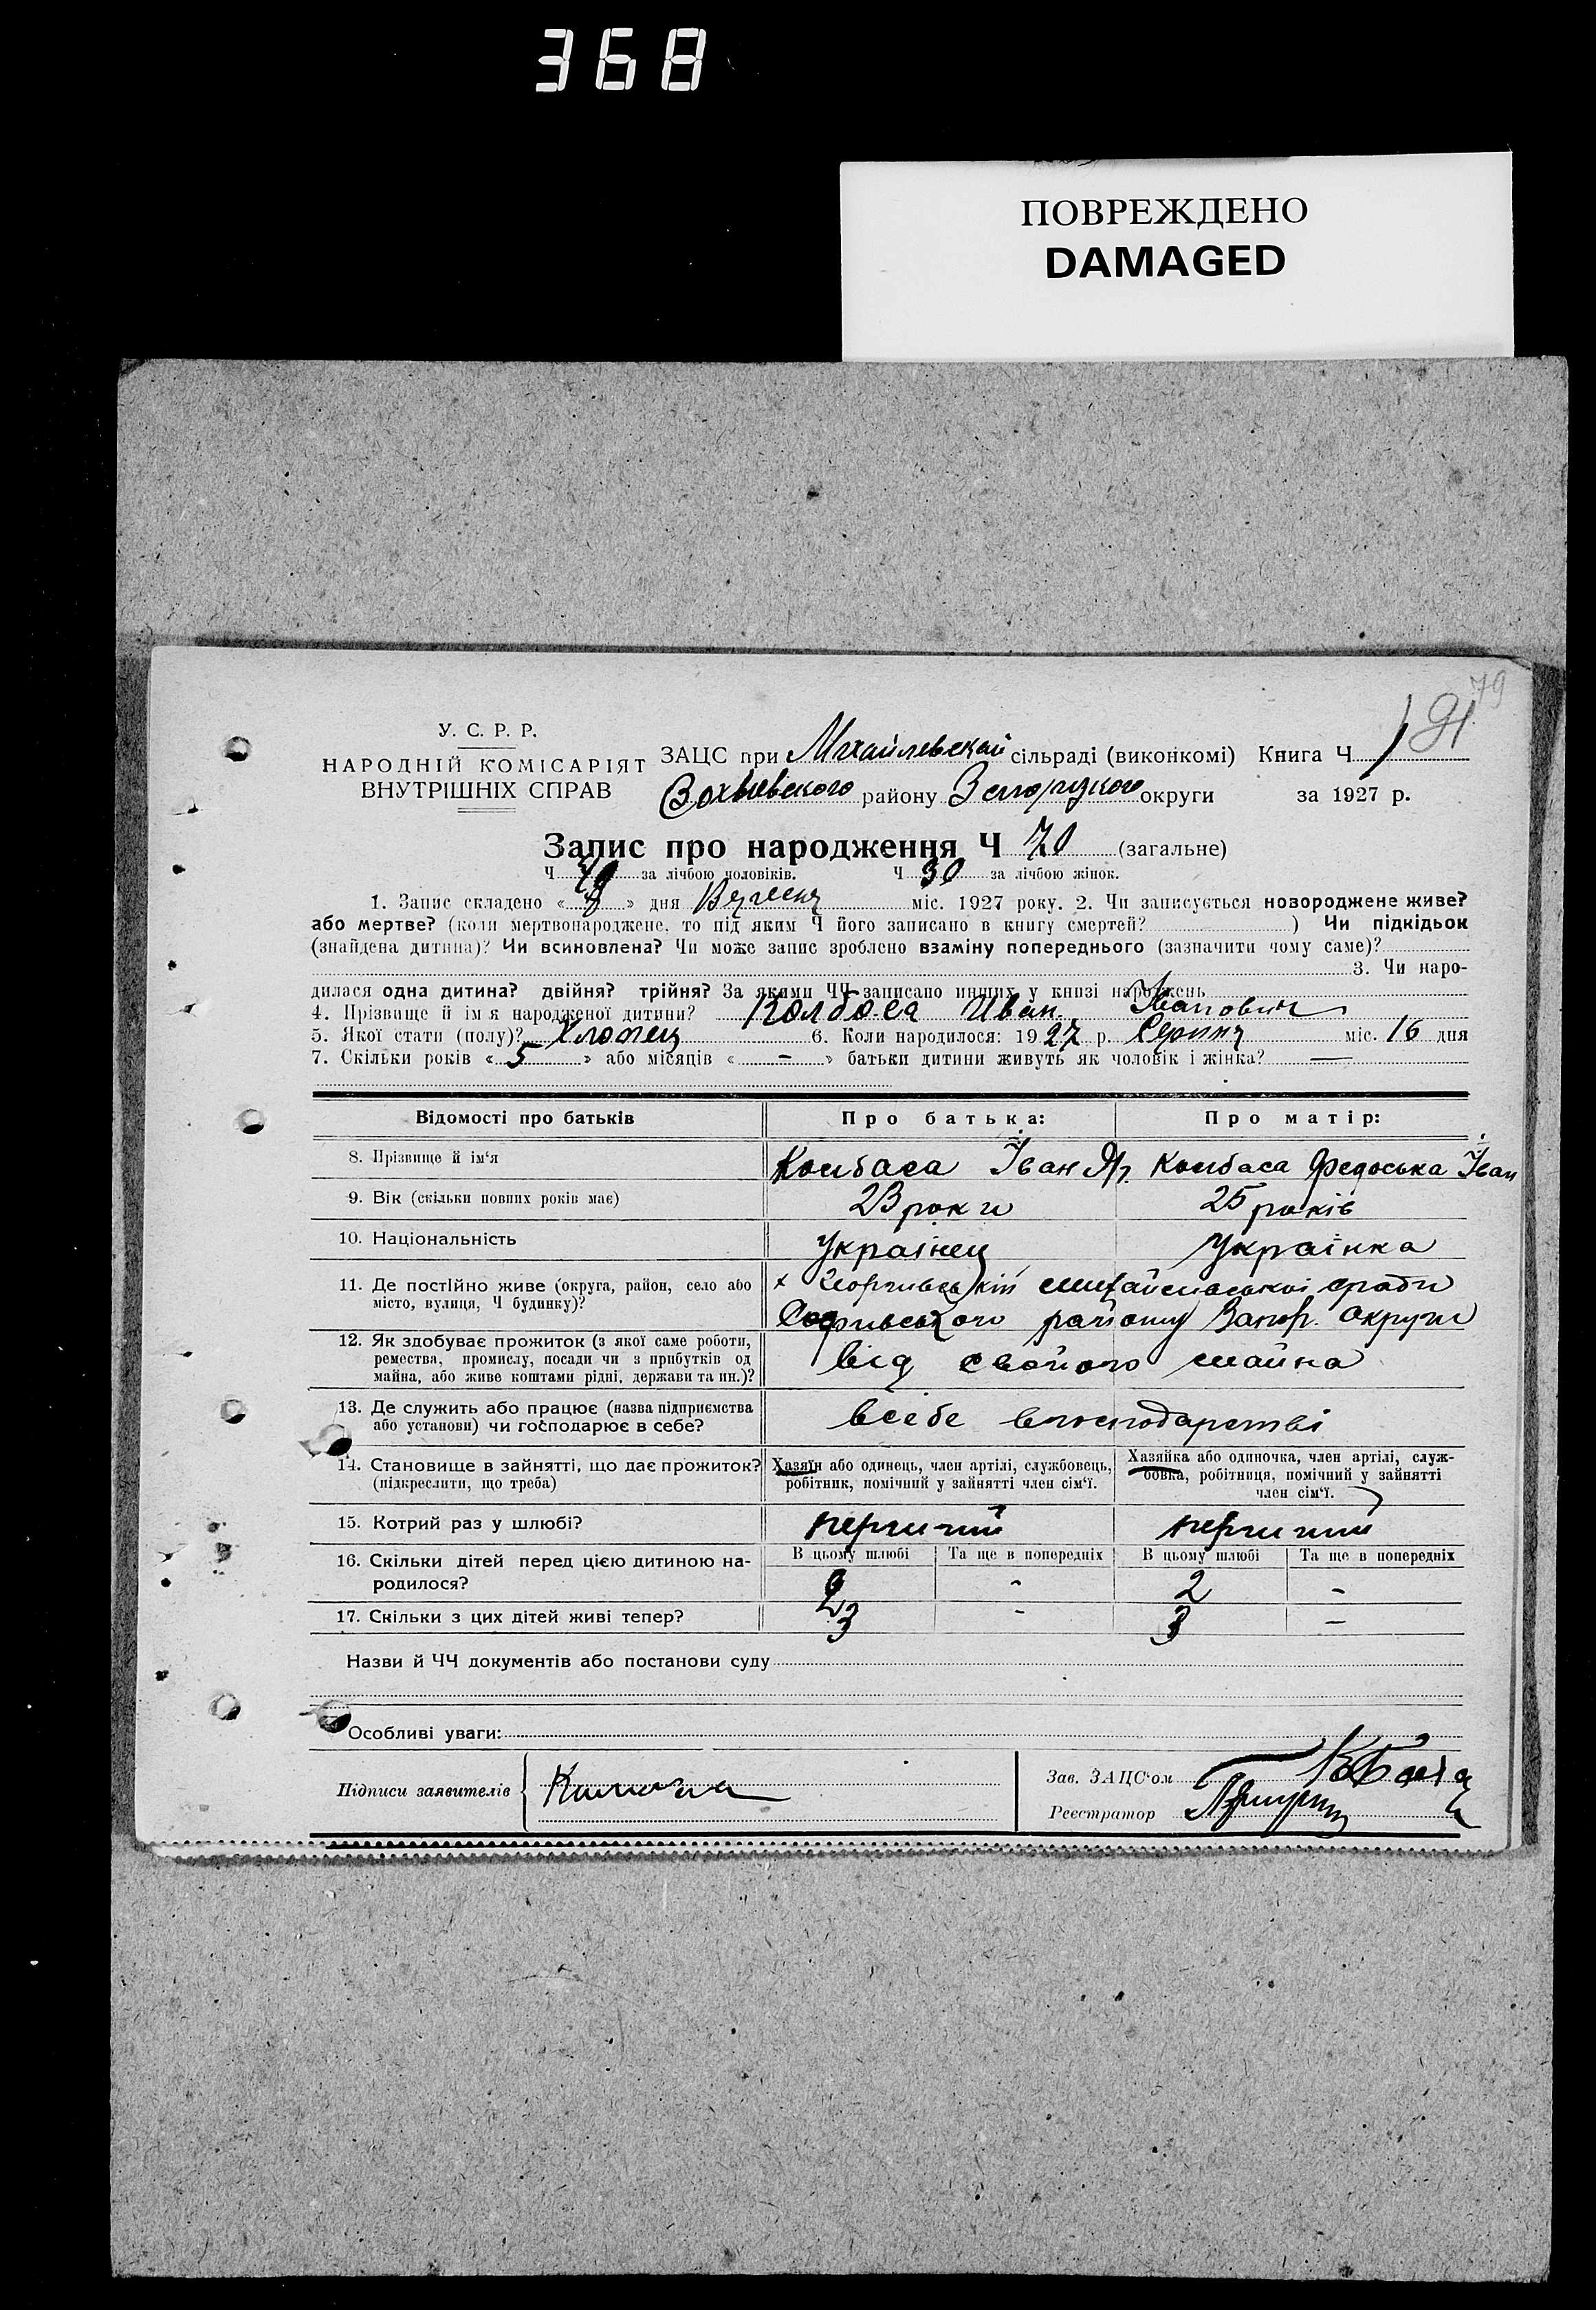 368
ПОВРЕЖДЕНО
DAMAGED
79
91
У. С. Р. Р.
НАРОДНІЙ КОМІСАРІЯТ
ВНУТРІШНІХ СПРАВ
ЗАЦС при Михайлевской сільраді (виконкомі) Книга Ч 1
району округи за 1927 р.
Запис про народження Ч 70 (загальне)
Ч 40 за лічбою чоловіків. Ч 30 за лічбою жінок.
1. Запис складено « 8 » дня Вересня міс. 1927 року. 2. Чи записується новороджене живе?
або мертве? (коли мертвонароджене, то під яким Ч його записано в книгу смертей? ) Чи підкідьок
(знайдена дитина)? Чи всиновлена? Чи може запис зроблено взаміну попереднього (зазначити чому саме)?
3. Чи наро-
дилася одна дитина? двійня? трійня? За якими ЧЧ записано инших у книзі народжень
4. Прізвище й ім'я народженої дитини? Колбаса Иван Іванович
5. Якої стати (полу)? Хлопец 6. Коли народилося: 1927 р. Серпня міс. 16 дня
7. Скільки років « 5 » або місяців « - » батьки дитини живуть як чоловік і жінка? —
Відомості про батьків Про батька: Про матір:
8. Прізвище й ім'я Колбаса Іван Яр. Колбаса Федоська Іван
9. Вік (скільки повних років має) 23 роки 25 років
10. Національність Українец Українка
11. Де постійно живе (округа, район, село або
місто, вулиця, Ч будинку)? Михайлівської сради
Софиевського района Запор. округи
12. Як здобуває прожиток (з якої саме роботи,
ремества, промислу, посади чи з прибутків од
майна, або живе коштами рідні, держави та ин.)? від свойого майна
13. Де служить або працює (назва підприємства
або установи) чи господарює в себе? всебе в господарстві
14. Становище в зайнятті, що дає прожиток?
(підкреслити, що треба)
Хазяїн або одинець, член артілі, службовець,
робітник, помічний у зайнятті член сім'ї.
Хазяйка або одиночка, член артілі, служ-
бовка, робітниця, помічний у зайнятті
член сім'ї.
15. Котрий раз у шлюбі? перший перший
16. Скільки дітей перед цією дитиною на-
родилося?
В цьому шлюбі Та ще в попередніх В цьому шлюбі Та ще в попередніх
2 - 2 -
17. Скільки з цих дітей живі тепер? 3 - 3 -
Назви й ЧЧ документів або постанови суду
Особливі уваги:
Підписи заявителів
Зав. ЗАЦС'ом
Реєстратор